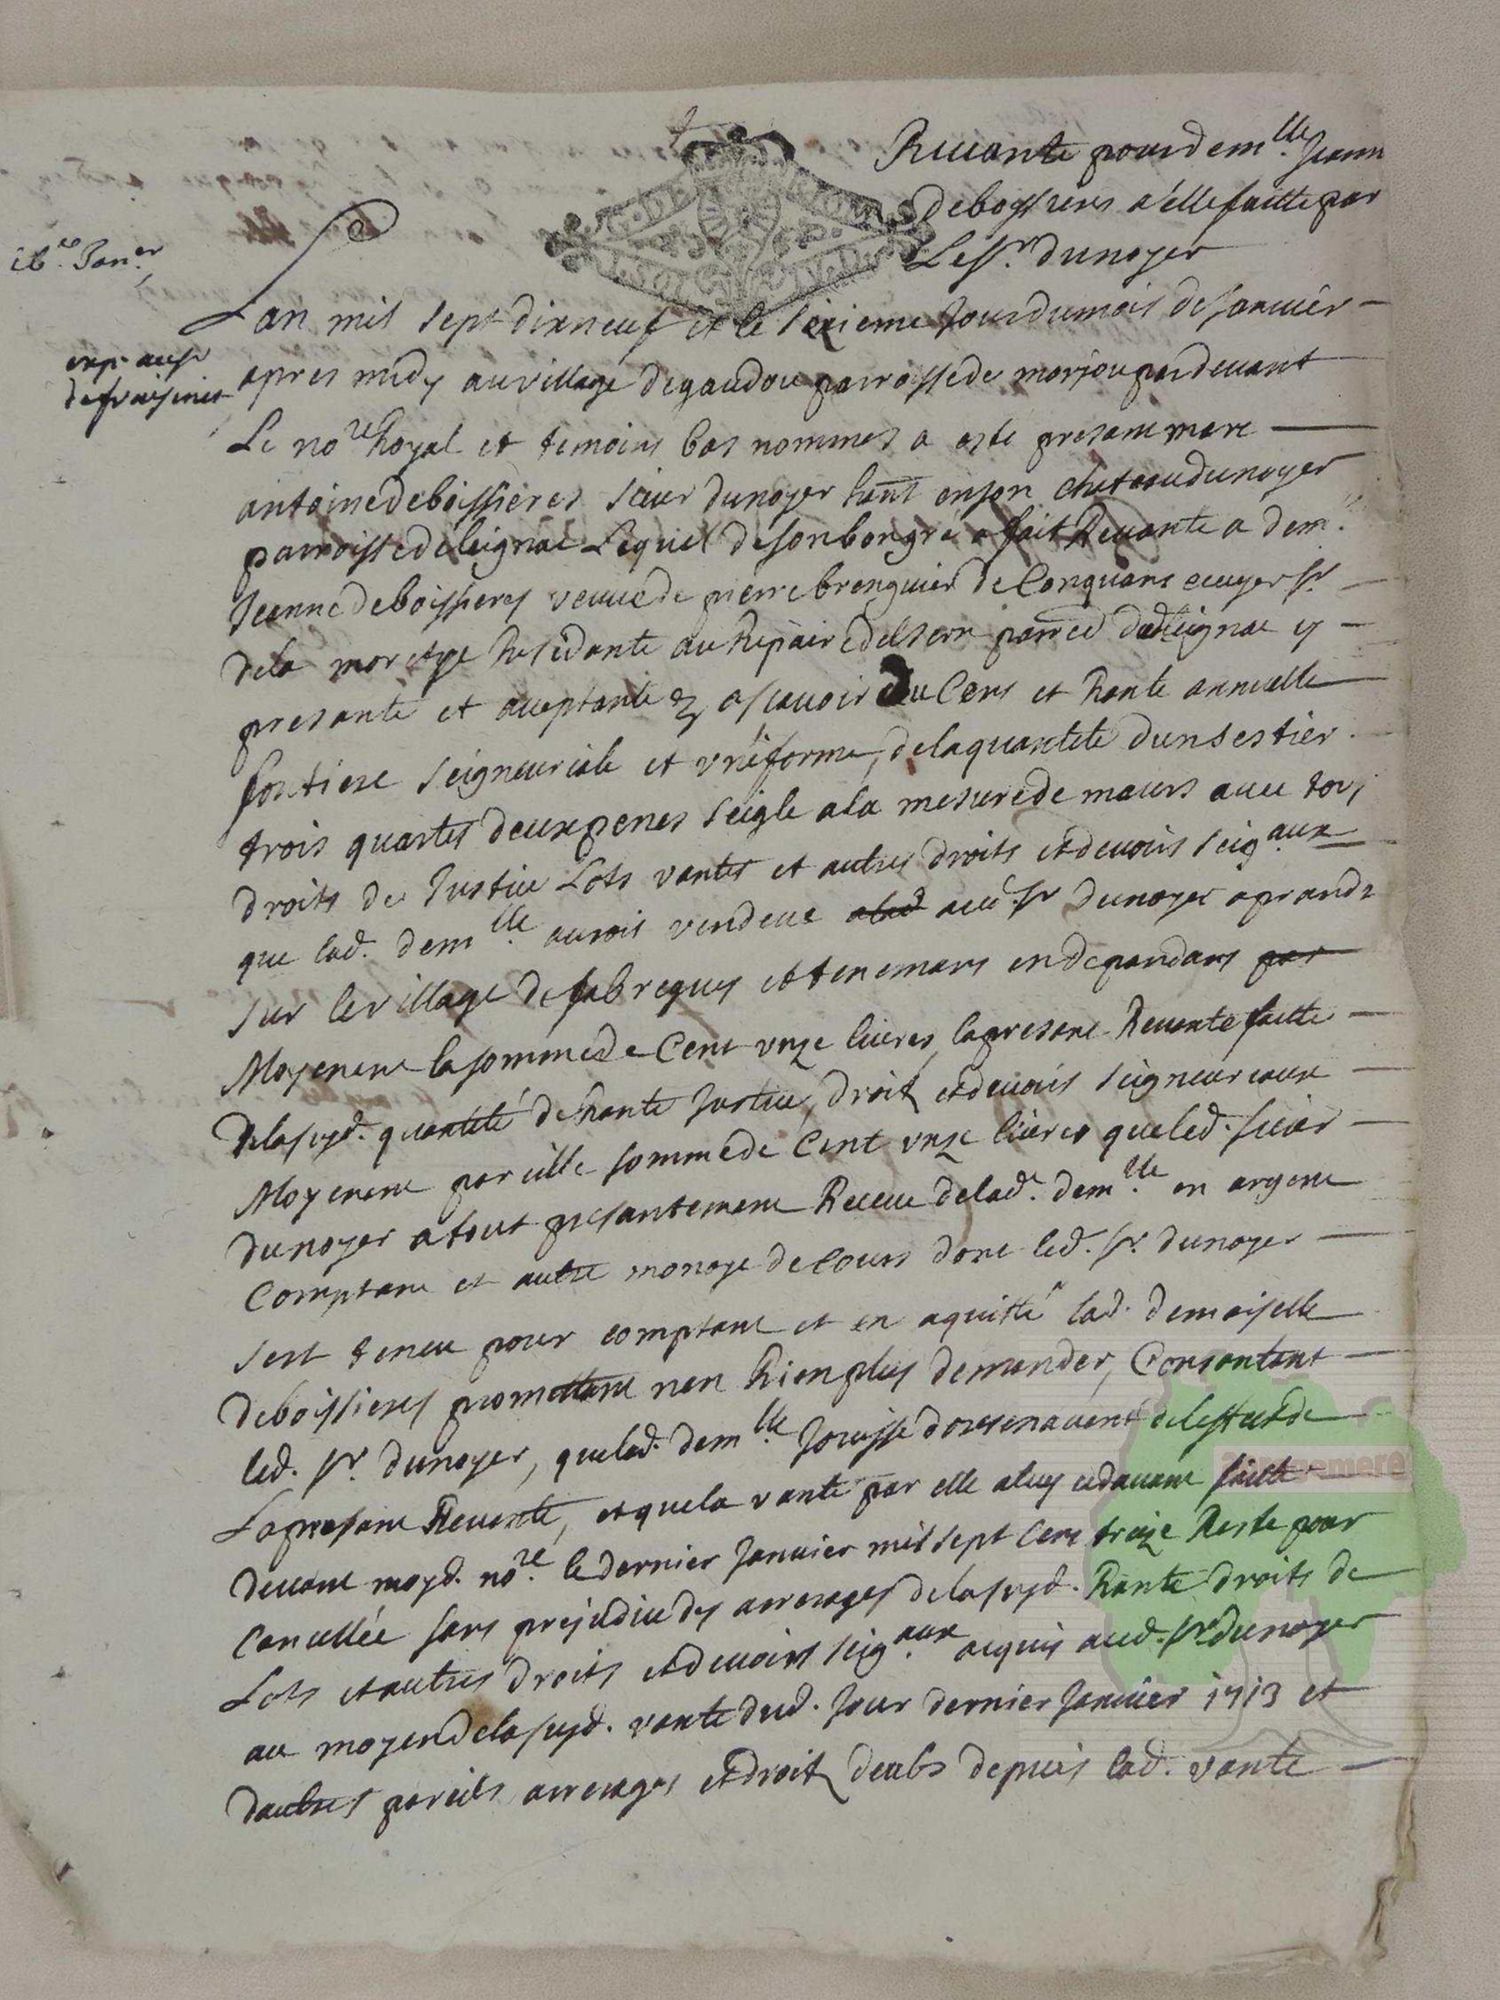 Revante pour dem.lle Jeann
deboyssieres a elle faitte par
Le sr. dunoyer
16.e Jan.er
Lan mil sept dixneuf et le sezieme Jour du mois de Janvier
apres midy au village de gaudou parroisse de marjou par devant
Le no.re Royal et temoins bas nommes a esté presant marc
antoine de boissieres sieur dunoyer hant en son chateau dunoyer
parroisse de leignac Lequel de son bon gré a fait Revante a dem.
Jeanne de boissieres veuve de pierre brenguier de Conquans ecuyer sr.
dela Residante au Repaire parr.e de leignac y
presante et aceptante a scavoir du Cens et Rante annuelle
fontiere seigneuriale et uniforme, dela quantité dun sestier
trois quartes deux penes seigle ala mesure de maurs avec tous
droits de Justice Lots vantes et autres droits et devoirs seig.aux
que lad. dem.lle avoit vendeue aud. sr dunoyer aprandre
sur le village de fabregues et tenemans en depandans par
Moyenent la somme de Cent unze livres, la presant Revante faitte
dela susd. quantité de Rante Justice, droit et devoirs seigneureaux
Moyenent pareille somme de Cent unze livres que led. sieur
dunoyer a tout presantement Receue de lad. dem.lle en argent
Comptant et autre monoye de Cours dont led. sr. dunoyer
sest teneu pour comptant et en aquitte lad. demoiselle
deboissieres promettant nen Rien plus demander, Consantant
led. sr. dunoyer, que lad. dem.lle Jouisse doresenavent de leffait de
La presant Revante, et que la vante par elle a luy cidavant faitte
devant moyd. no.re le dernier Janvier mil sept cent traize Reste pour
Cancellée sans prejudice des arrerages de la susd. Rante droits de
Lots et autres droits et devoirs seig.aux acquis aud. sr. dunoyer
au moyen de la susd. vante dud. Jour dernier Janvier 1713 et
dautres pareils arrerages et droit deubs depuis lad. vante